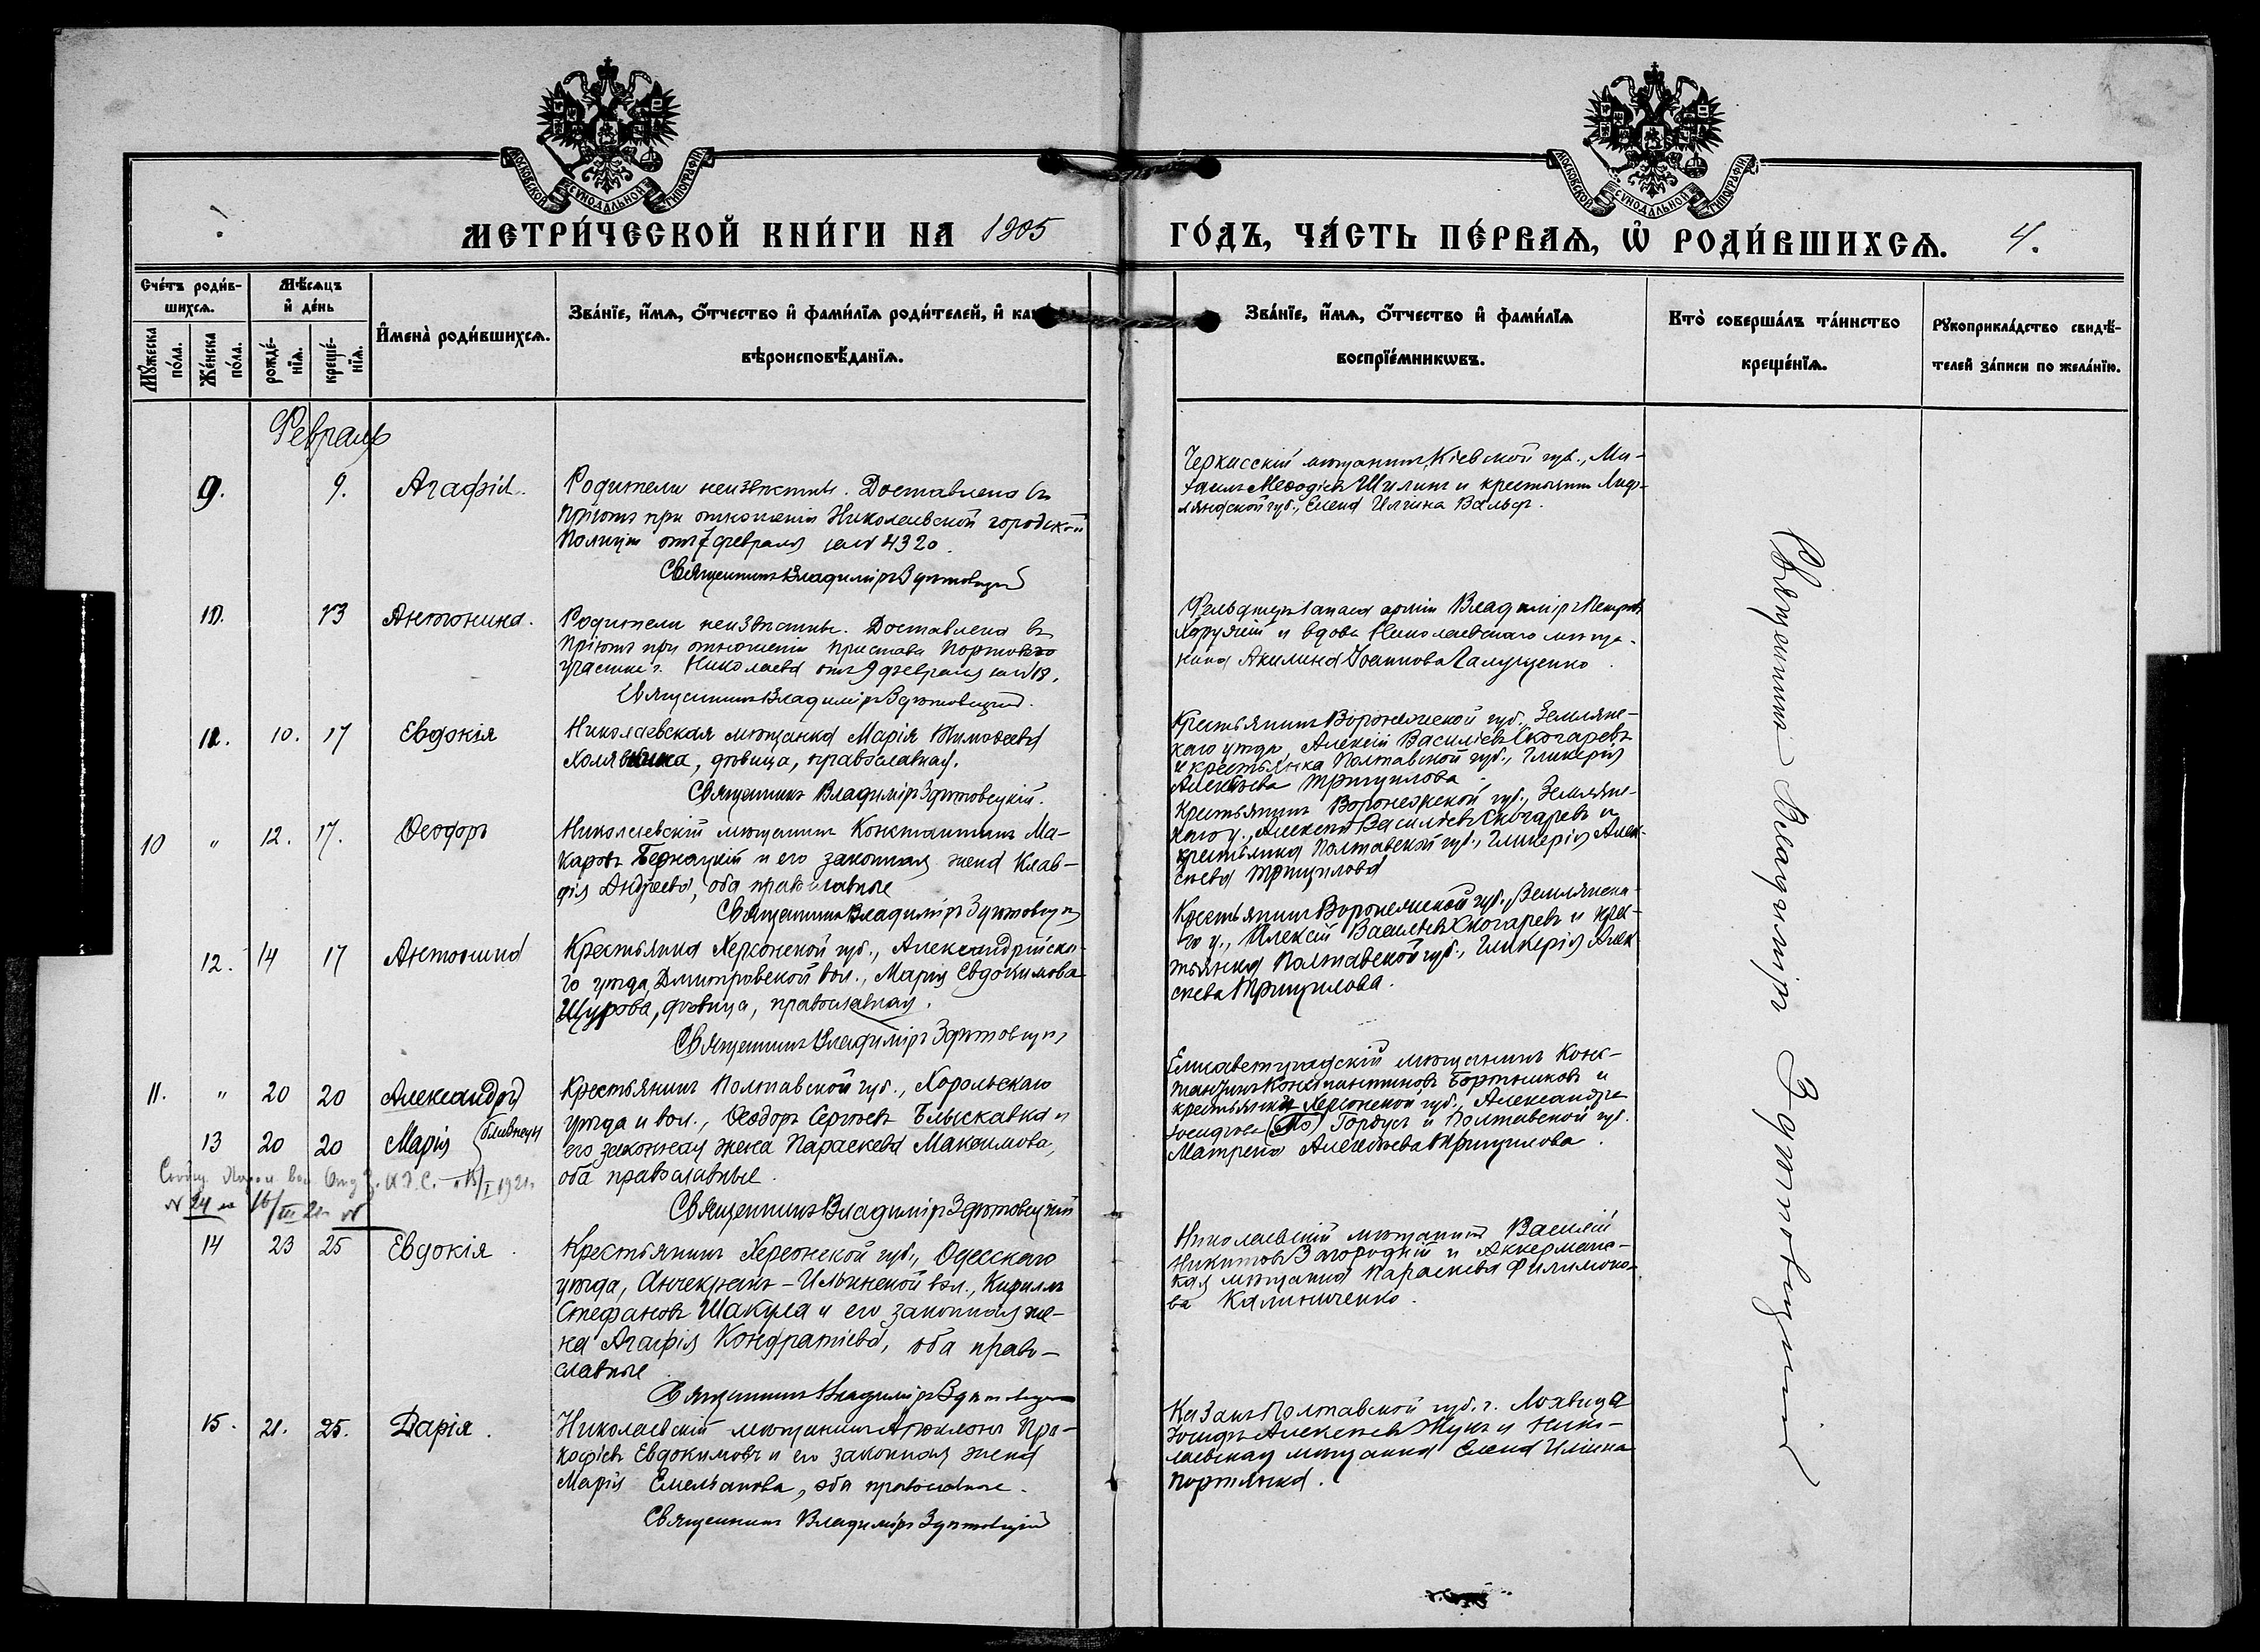 МОСКОВСКОЙ СѴНОДАЛЬНОЙ ТИПОГРАФІИ
МОСКОВСКОЙ СѴНОДАЛЬНОЙ ТИПОГРАФІИ
МЕТРИ́ЧЕСКОЙ КНИ́ГИ НА 1905 ГО́ДЪ, ЧА́СТЬ ПЕ́РВАѦ, Ѡ҆ РОДИ́ВШИХСѦ. 4.
Сче́тъ роди́в-
шихсѧ.
Мꙋ́жеска по́ла.
Же́нска по́ла.
Мѣ́сѧцъ и҆ де́нь
рожде́-
нїѧ.
креще́-
нїѧ.
И҆мена̀ роди́вшихсѧ.
Зва́нїе, и҆́мѧ, ѻ҆́тчество и҆ фами́лїѧ роди́телей, и҆
вѣроисповѣ́данїѧ.
Зва́нїе, и҆́мѧ, ѻ҆́тчество и҆ фами́лїѧ
воспрїе́мникѡвъ.
Кто̀ соверша́лъ та́инство
креще́нїѧ.
Рꙋкоприкла́дство свидѣ́-
телей за́писи по жела́нїю.
Февраль
9. 9. Агафія.
Родители неизвѣстны. Доставлена въ
пріютъ при отношеніи Николаевской городской
Полиціи отъ 7 февраля за № 4320.
Священникъ Владиміръ Здѣтовецкій
Черкасскій мѣщанинъ, Кіевской губ., Ми-
хаилъ Меѳодіевъ Шилинъ и крестьянка Лиф-
ляндской губ., Елена Ильина Вальфъ.
10. 13 Антонина.
Родители неизвѣстны. Доставлена въ
пріютъ при отношеніи пристава Портоваго
участка г. Николаева отъ 9 февраля за № 18.
Священникъ Владиміръ Здѣтовецкій.
Фельдшеръ запаса арміи Владиміръ Петровъ
и вдова Николаевскаго мѣща-
нина Акилина Іоаннова Галущенко.
11. 10. 17 Евдокія
Николаевская мѣщанка Марія Тимоѳеева
дѣвица, православная.
Священникъ Владиміръ Здѣтовецкій.
Крестьянинъ Воронежской губ., Землянс-
каго уѣзда, Алексій Васильевъ Скогаревъ
и крестьянка Полтавской губ., Гликерія
Алексѣева Трищилова
10 " 12. 17. Ѳеодоръ
Николаевскій мѣщанинъ Константинъ Ма-
каровъ Бернацкій и его законная жена Клав-
дія Андреева, оба православные
Священникъ Владиміръ Здѣтовецкій
Крестьянинъ Воронежской губ., Землянс-
каго у., Алексѣй Васильевъ Скогаревъ и
крестьянка Полтавской губ., Гликерія Алек-
сѣева Трищилова
12. 14 17 Антонина
Крестьянка Херсонской губ., Александрійска-
го уѣзда, Дмитровской вол., Марія Евдокимова
Щурова, дѣвица, православная.
Священникъ Владиміръ Здѣтовецкій
Крестьянинъ Воронежской губ., Землянска-
го у., Алексій Васильевъ Скогаревъ и крес-
тьянка Полтавской губ., Гликерія Алек-
сѣева Трищилова.
11. " 20 20 Александръ
13 20 20 Марія близнецы
Крестьянинъ Полтавской губ., Хорольскаго
уѣзда и вол., Ѳеодоръ Сергѣевъ Блыскавка и
его законная жена Параскева Максимова,
оба православные.
Священникъ Владиміръ Здѣтовецкій
Елисаветградскій мѣщанинъ Конс-
тантинъ Константиновъ Бортниковъ и
крестьянки Херсонской губ., Александра
Іосифова Гордусъ и Полтавской губ.
Матрена Алексѣева Трищилова.
14 23 25 Евдокія.
Крестьянинъ Херсонской губ., Одесскаго
уѣзда, Анчекракъ-Ильинской вол., Кириллъ
Стефановъ Шакула и его законная же-
на Агафія Кондратіева, оба право-
славные
Священникъ Владиміръ Здѣтовецкій
Николаевскій мѣщанинъ Василій
Никитовъ Загородній и Аккерманс-
кая мѣщанка Параскева Филимоно-
ва Калиниченко.
15. 21. 25. Дарія.
Николаевскій мѣщанинъ Про-
кофіевъ Евдокимовъ и его законная жена
Марія Емельянова, оба православные.
Священникъ Владиміръ Здѣтовецкій
Казакъ Полтавской губ. г. Лохвица
Іосифъ Алексѣевъ Жукъ и Нико-
лаевская мѣщанка Елена Ильина
Портянка.
Священникъ Владиміръ Здѣтовецкій